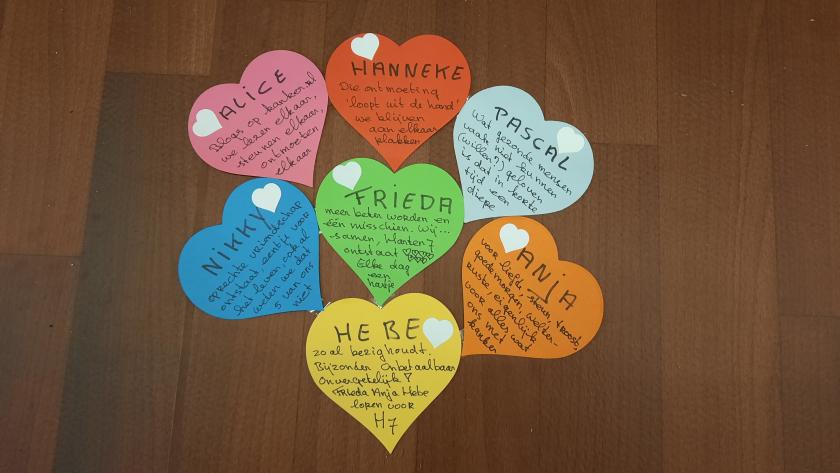 ALICE
Blogs op kanker.nl
we lezen elkaar,
steunen elkaar,
ontmoeten
elkaar
HANNEKE
Die ontmoeting
'loopt uit de hand'
we blijven
aan elkaar
plakken
PASCAL
Wat gezonde mensen
vaak niet kunnen
(willen?) geloven
is dat in korte
tijd een
diepe
NIKKY
oprechte vriendschap
ontstaat, eentje voor
het leven ook al
weten we dat
5 van ons
niet
FRIEDA
meer beter worden en
één misschien. Wij...
samen, Harten7
ontstaat
Elke dag
een
hartje
ANJA
voor liefde, steun, troost,
goedemorgen, welte-
ruste, eigenlijk
voor alles wat
ons met
kanker
HEBE
zo al bezighoudt.
Bijzonder Onbetaalbaar
Onvergetelijk!
Frieda Anja Hebe
lopen voor
H7